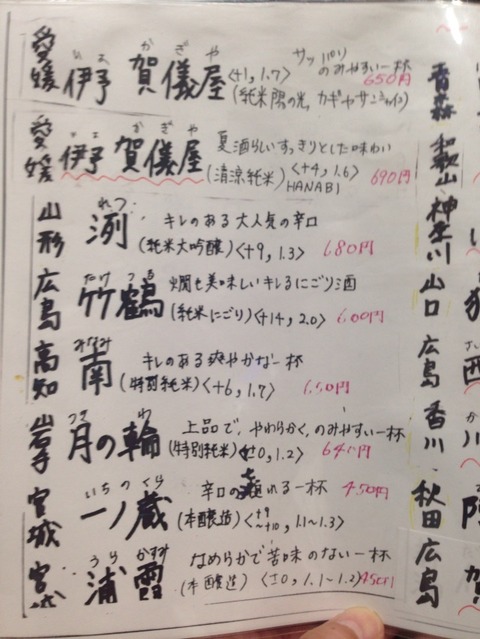 愛媛 伊予 賀儀屋 <+1, 1.7> サッパリのみやすい一杯 650円
いよ かぎや
(純米 陽の光, カギヤサンシャイン)
愛媛 伊予 賀儀屋 夏酒らしいすっきりとした味わい
いよ かぎや
(清涼純米) <+4, 1.6> HANABI 690円
山形 洌 キレのある大人気の辛口
れつ
(純米大吟醸) <+9, 1.3> 680円
広島 竹鶴 燗も美味しいキレるにごり酒
たけ つる
(純米にごり) <+14, 2.0> 600円
高知 南 キレのある爽やかな一杯
みなみ
(特別純米) <+6, 1.7>
岩手 月の輪 上品で、やわらかく、のみやすい一杯
つき わ
(特別純米) <±0, 1.2>
宮城 一ノ蔵 辛口の れる一杯 450円
いちのくら
(本醸造) <+9~+10, 1.1~1.3>
宮城 浦霞 なめらかで苦味のない一杯
うら かすみ
(本醸造) <±0, 1.1~1.2> 450円
青森
和歌山
神奈川
山口
広島
香川
秋田
広島